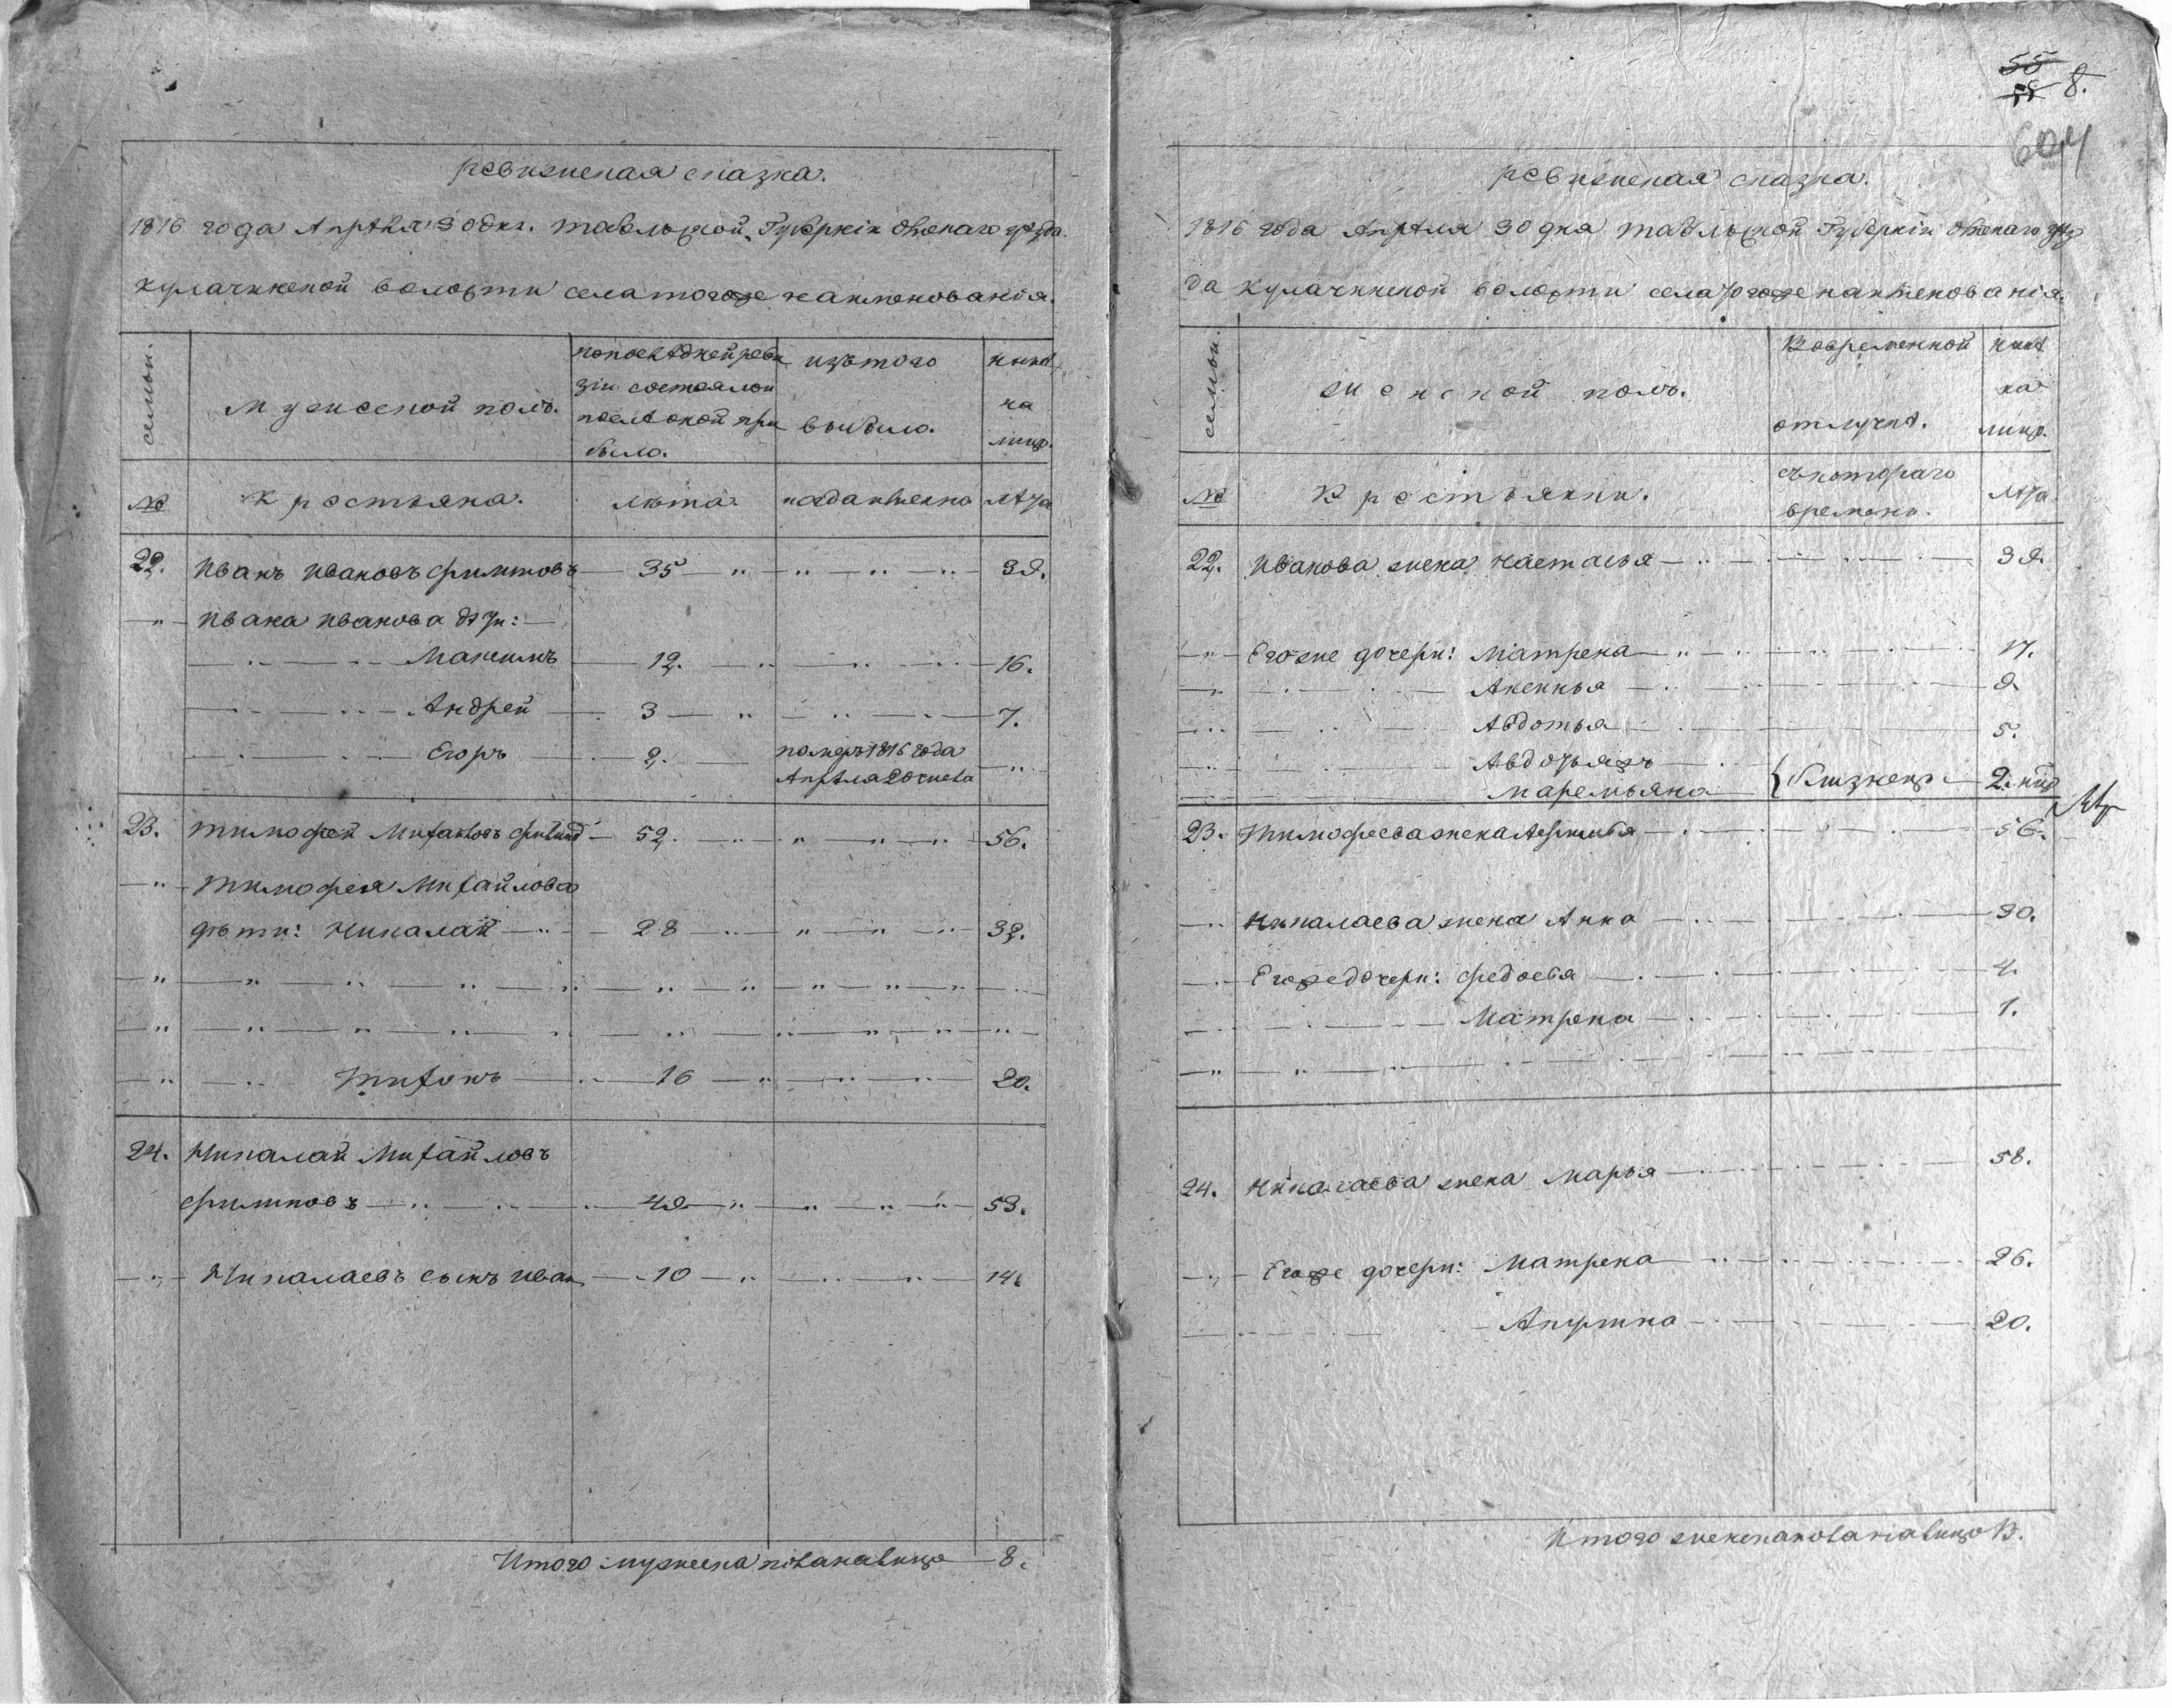 ревизская сказка.
1816 года Апрѣля 30 дня. тобольской Губернiи Омскаго уѣзда
кулачинской волости села тогоже наименованiя.
семьи.
мужеской полъ.
попослѣдней реви
зiи состояло и
послѣ оной при
было.
изътого
выбыло.
нынѣ
на
лицо.
№
крестьяна.
лѣта.
когда имянно
лѣта
22. Иванъ Ивановъ филиповъ 35 39.
Ивана Иванова дѣти:
Максимъ 12. 16.
Андрей 3 7.
Егоръ 2. померъ 1816 года
Апрѣля 20 числа
23. тимофей Михайловъ 52. 56.
тимофея Михайлова
дѣти: Николай 28 32.
тихонъ 16 20.
24. Николай Михайловъ
филиповъ 49 53.
Николаевъ сынъ Иван 10 14.
Итого мужеска пола налицо 8.
55
55 8.
604
ревизская сказка.
1816 года Апрѣля 30 дня тобольской Губернiи Омскаго уѣз
да кулачинской волости села тогоже наименованiя.
семьи.
женской полъ.
Вовременной
отлучкѣ.
нынѣ
на
лицо.
№
Крестьянки.
съкотораго
времяни.
лѣта
22. Иванова жена настасья 39.
Егоже дочери: Матрена 17.
Аксинья 9.
Авдотья 5.
Авдотья
маремьяна близнецы 2. нед
23. тимофеева жена 56.
Николаева жена Анна 30.
Егоже дочери: федосья 4.
Матрена 1.
24. Николаева жена марья 58.
Егоже дочери: матрена 26.
Акулина 20.
Итого женска пола налицо 13.